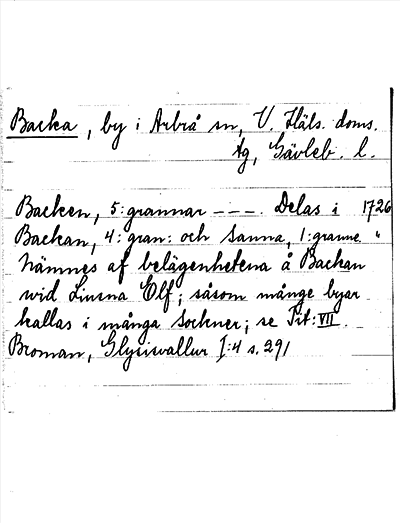 Backa, by i Arbrå sn, V. Häls. doms.
tg, Gävleb. l.
Backen, 5: grannar ---. Delas i 1726
Backan, 4: gran: och Sanna, 1: granne. "
Nämnes af belägenhetena å Backan
wid Liusna Elf; såsom månge byar
kallas i många Sockner; se Tit: VII.
Broman, Glysisvallur I:4 s. 291